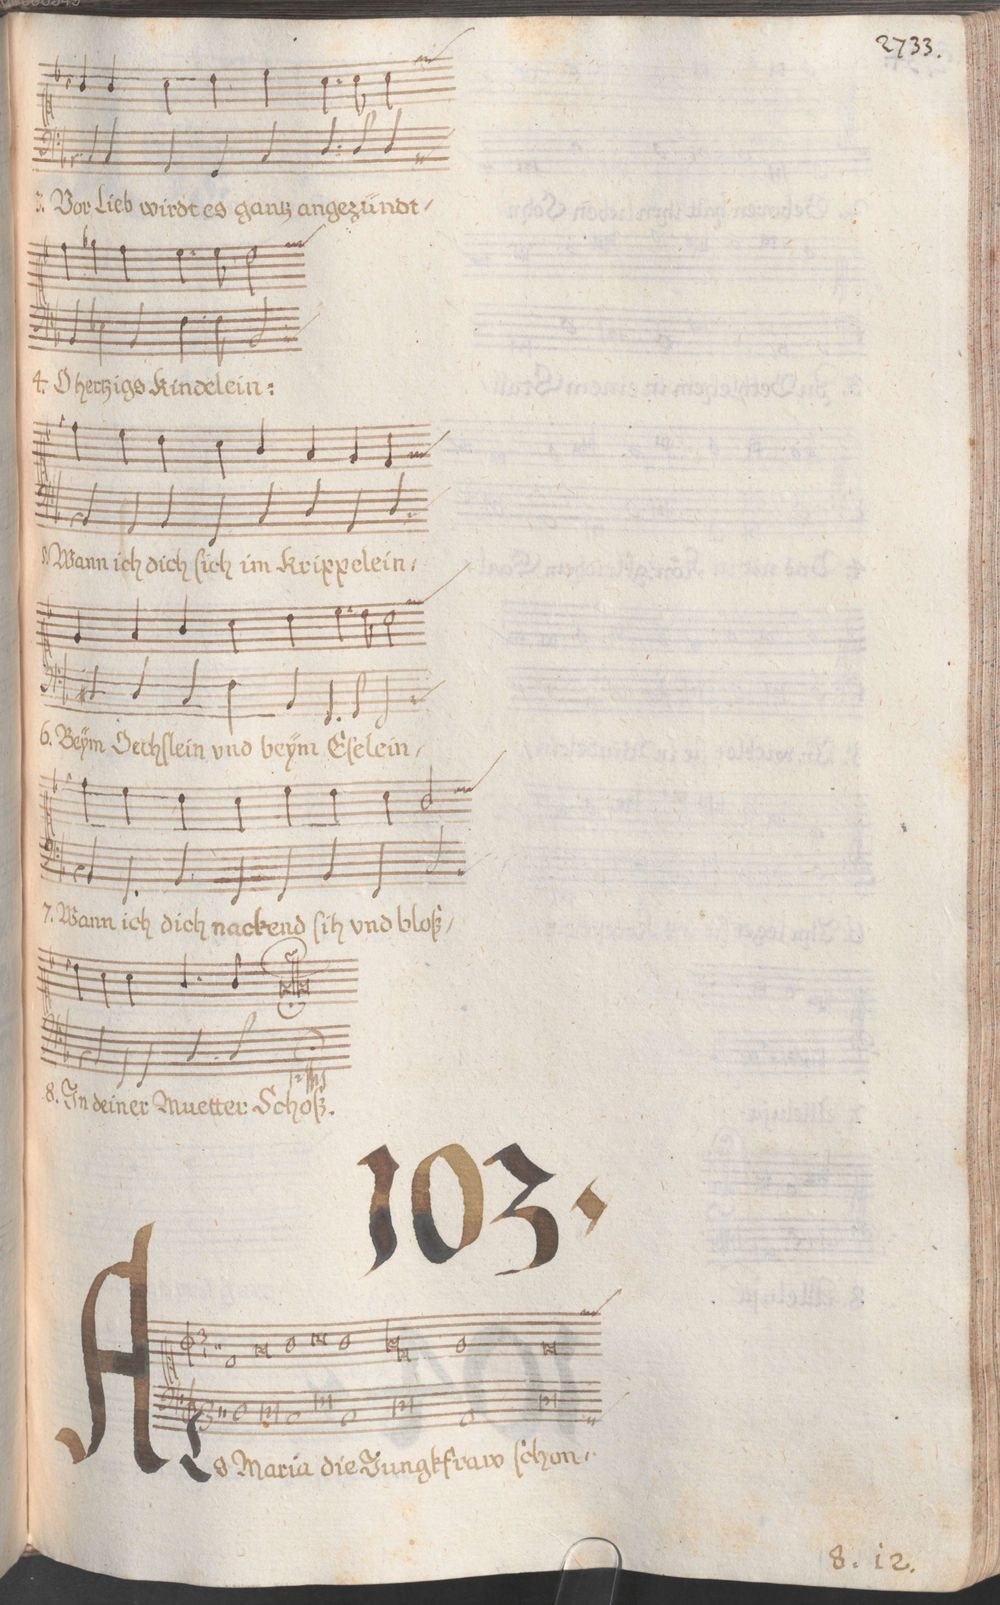 2733.
3. Vor Lieb wirdt es gantz angezündt/
4. O hertzigs Kindelein:
5. Wann ich dich sich im Krippelein/
6. Beÿm Oechslein vnd beÿm Eselein/
7. Wann ich dich nackend sih vnd bloß/
8. In deiner Muetter Schoß.
103.
ALs Maria die Jungkfraw schon/
8. 12.